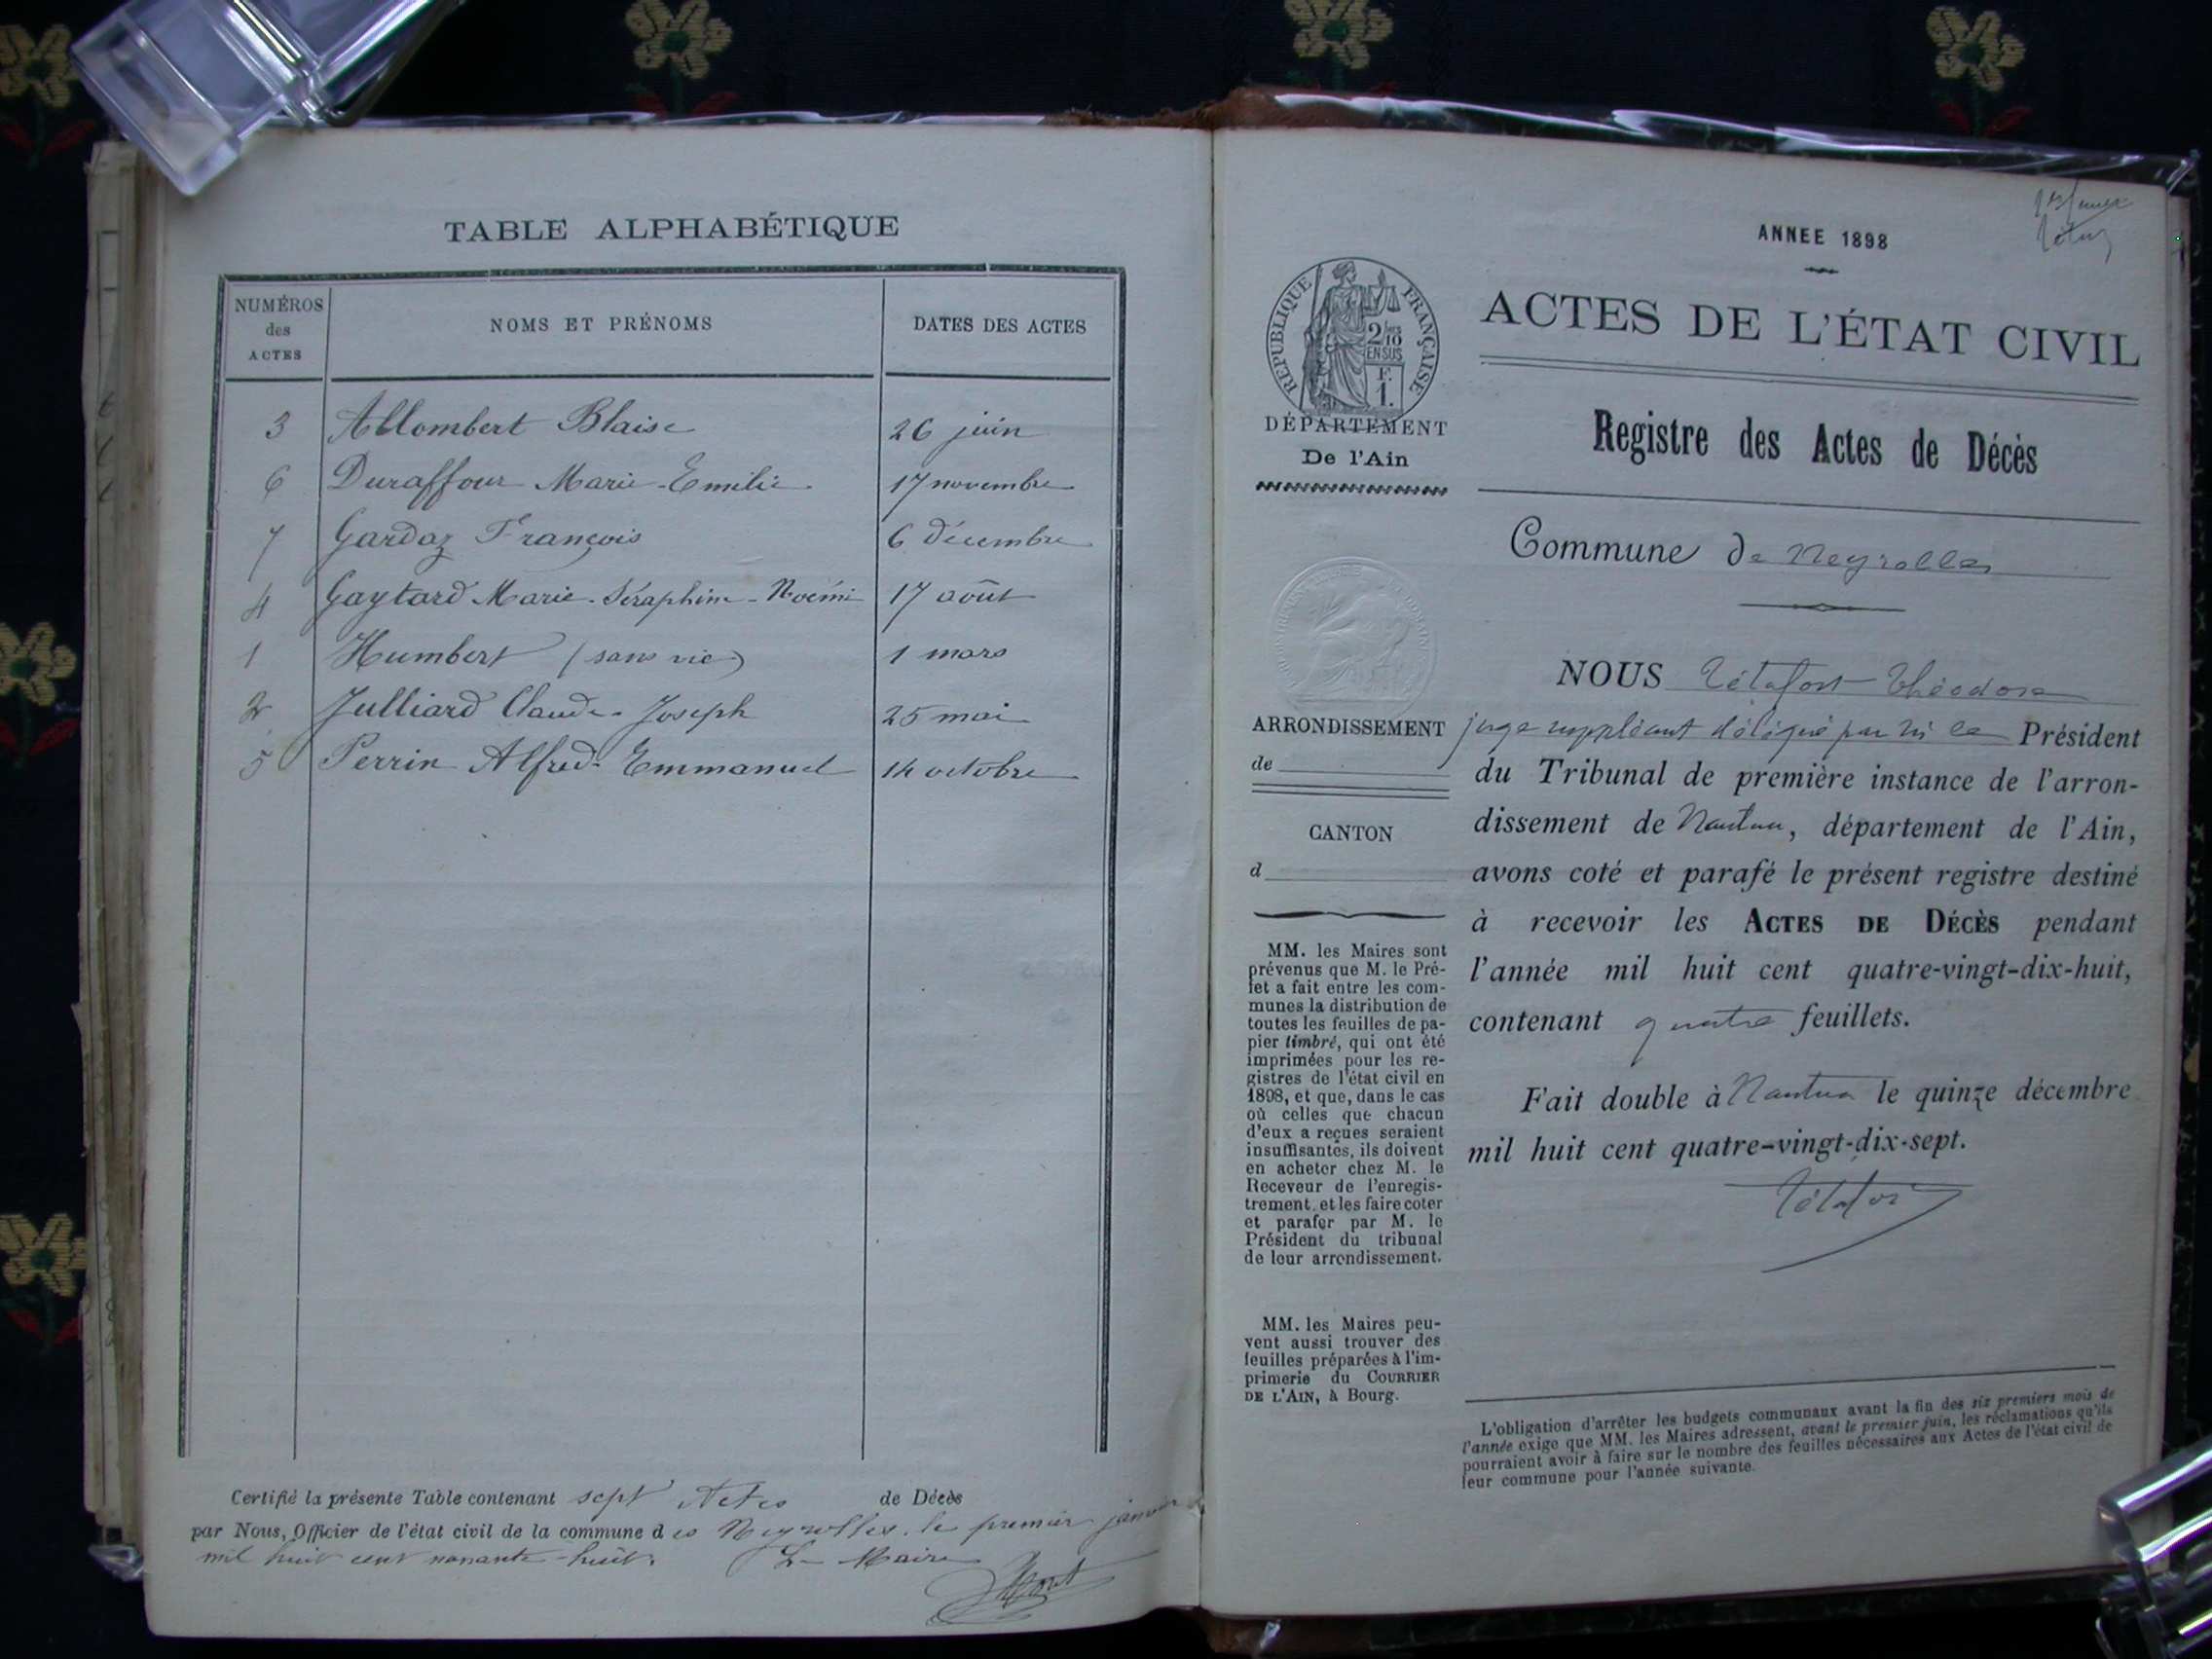 TABLE ALPHABÉTIQUE
NUMÉROS
des
ACTES
NOMS ET PRÉNOMS
DATES DES ACTES
3 Allombert Blaise 26 juin
6 Duraffour Marie-Emilie 17 novembre
7 Gardaz François 6 décembre
4 Gaytard Marie-Séraphine-Noémi 17 août
1 Humbert (sans vie) 1 mars
2 Julliard Claude-Joseph 25 mai
5 Perrin Alfred-Emmanuel 14 octobre
Certifié la présente Table contenant sept Actes de Décès
par Nous, Officier de l'état civil de la commune des Neyrolles, le premier janvier
mil huit cent nonante-huit. Le Maire
ANNEE 1898
RÉPUBLIQUE FRANÇAISE
2/10
EN SUS
F.
1.
ACTES DE L'ÉTAT CIVIL
DÉPARTEMENT
De l'Ain
Registre des Actes de Décès
Commune de Neyrolles
NOUS Tétafort Théodore
juge suppléant délégué par M le Président
du Tribunal de première instance de l'arron-
dissement de Nantua, département de l'Ain,
avons coté et parafé le présent registre destiné
à recevoir les ACTES DE DÉCÈS pendant
l'année mil huit cent quatre-vingt-dix-huit,
contenant quatre feuillets.
Fait double à Nantua le quinze décembre
mil huit cent quatre-vingt-dix-sept.
Tétafort
ARRONDISSEMENT
de
CANTON
d
MM. les Maires sont
prévenus que M. le Pré-
fet a fait entre les com-
munes la distribution de
toutes les feuilles de pa-
pier timbré, qui ont été
imprimées pour les re-
gistres de l'état civil en
1898, et que, dans le cas
où celles que chacun
d'eux a reçues seraient
insuffisantes, ils doivent
en acheter chez M. le
Receveur de l'enregis-
trement, et les faire coter
et parafer par M. le
Président du tribunal
de leur arrondissement.
MM. les Maires peu-
vent aussi trouver des
feuilles préparées à l'im-
primerie du COURRIER
DE L'AIN, à Bourg.
L'obligation d'arrêter les budgets communaux avant la fin des six premiers mois de
l'année exige que MM. les Maires adressent, avant le premier juin, les réclamations qu'ils
pourraient avoir à faire sur le nombre des feuilles nécessaires aux Actes de l'état civil de
leur commune pour l'année suivante.